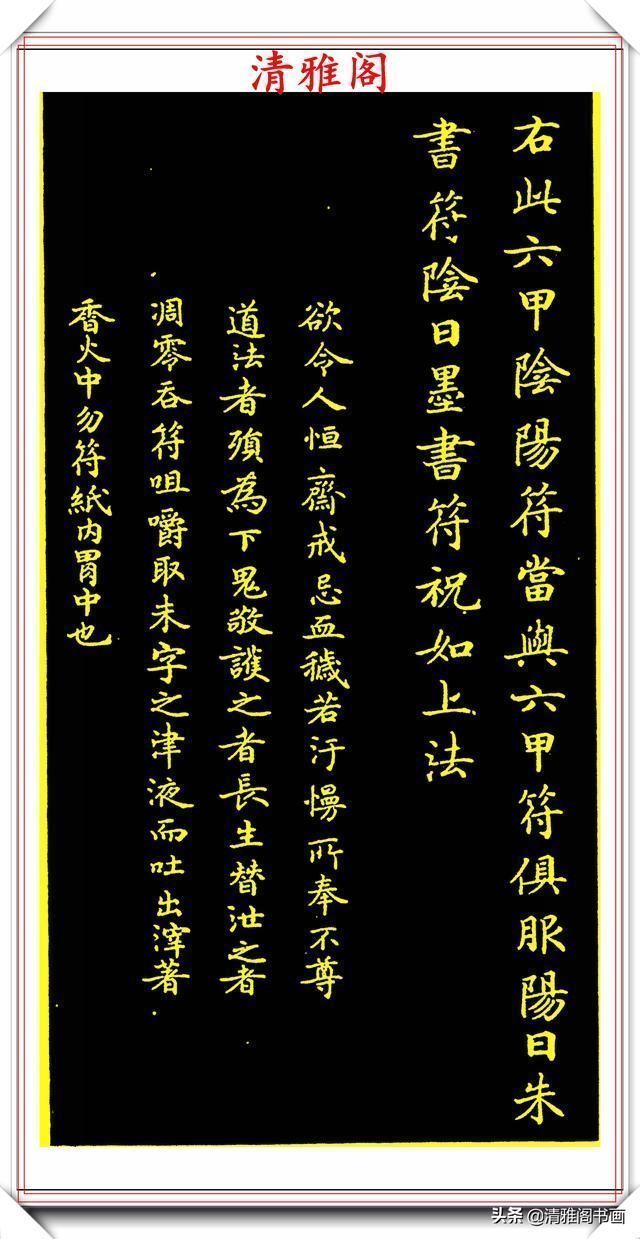 清雅阁
右此六甲陰陽符當與六甲符俱服陽日朱
書符陰日墨書符祝如上法
欲令人恒齋戒忌血穢若汙慢所奉不尊
道法者殞為下鬼敬護之者長生替泄之者
凋零吞符咀嚼取朱字之津液而吐出滓著
香火中勿符紙內胃中也
头条@清雅阁书画